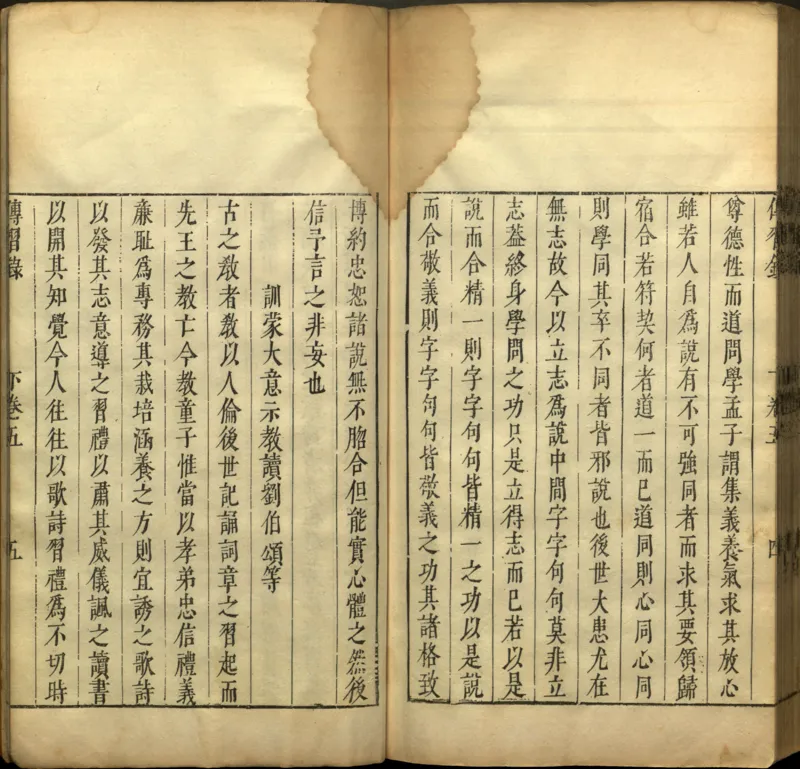 傳習錄 下卷五 四
尊德性而道問學孟子謂集義養氣求其放心
雖若人自爲說有不可強同者而求其要領歸
宿合若符契何者道一而已道同則心同心同
則學同其卒不同者皆邪說也後世大患尤在
無志故今以立志爲說中間字字句句莫非立
志蓋終身學問之功只是立得志而已若以是
說而合精一則字字句句皆精一之功以是說
而合敬義則字字句句皆敬義之功其諸格致
博約忠恕諸說無不脗合但能實心體之然後
信予言之非妄也
訓蒙大意示教讀劉伯頌等
古之教者教以人倫後世記誦詞章之習起而
先王之教亡今教童子惟當以孝弟忠信禮義
廉耻爲專務其栽培涵養之方則宜誘之歌詩
以發其志意導之習禮以肅其威儀諷之讀書
以開其知覺今人往往以歌詩習禮爲不切時
傳習錄 下卷五 五